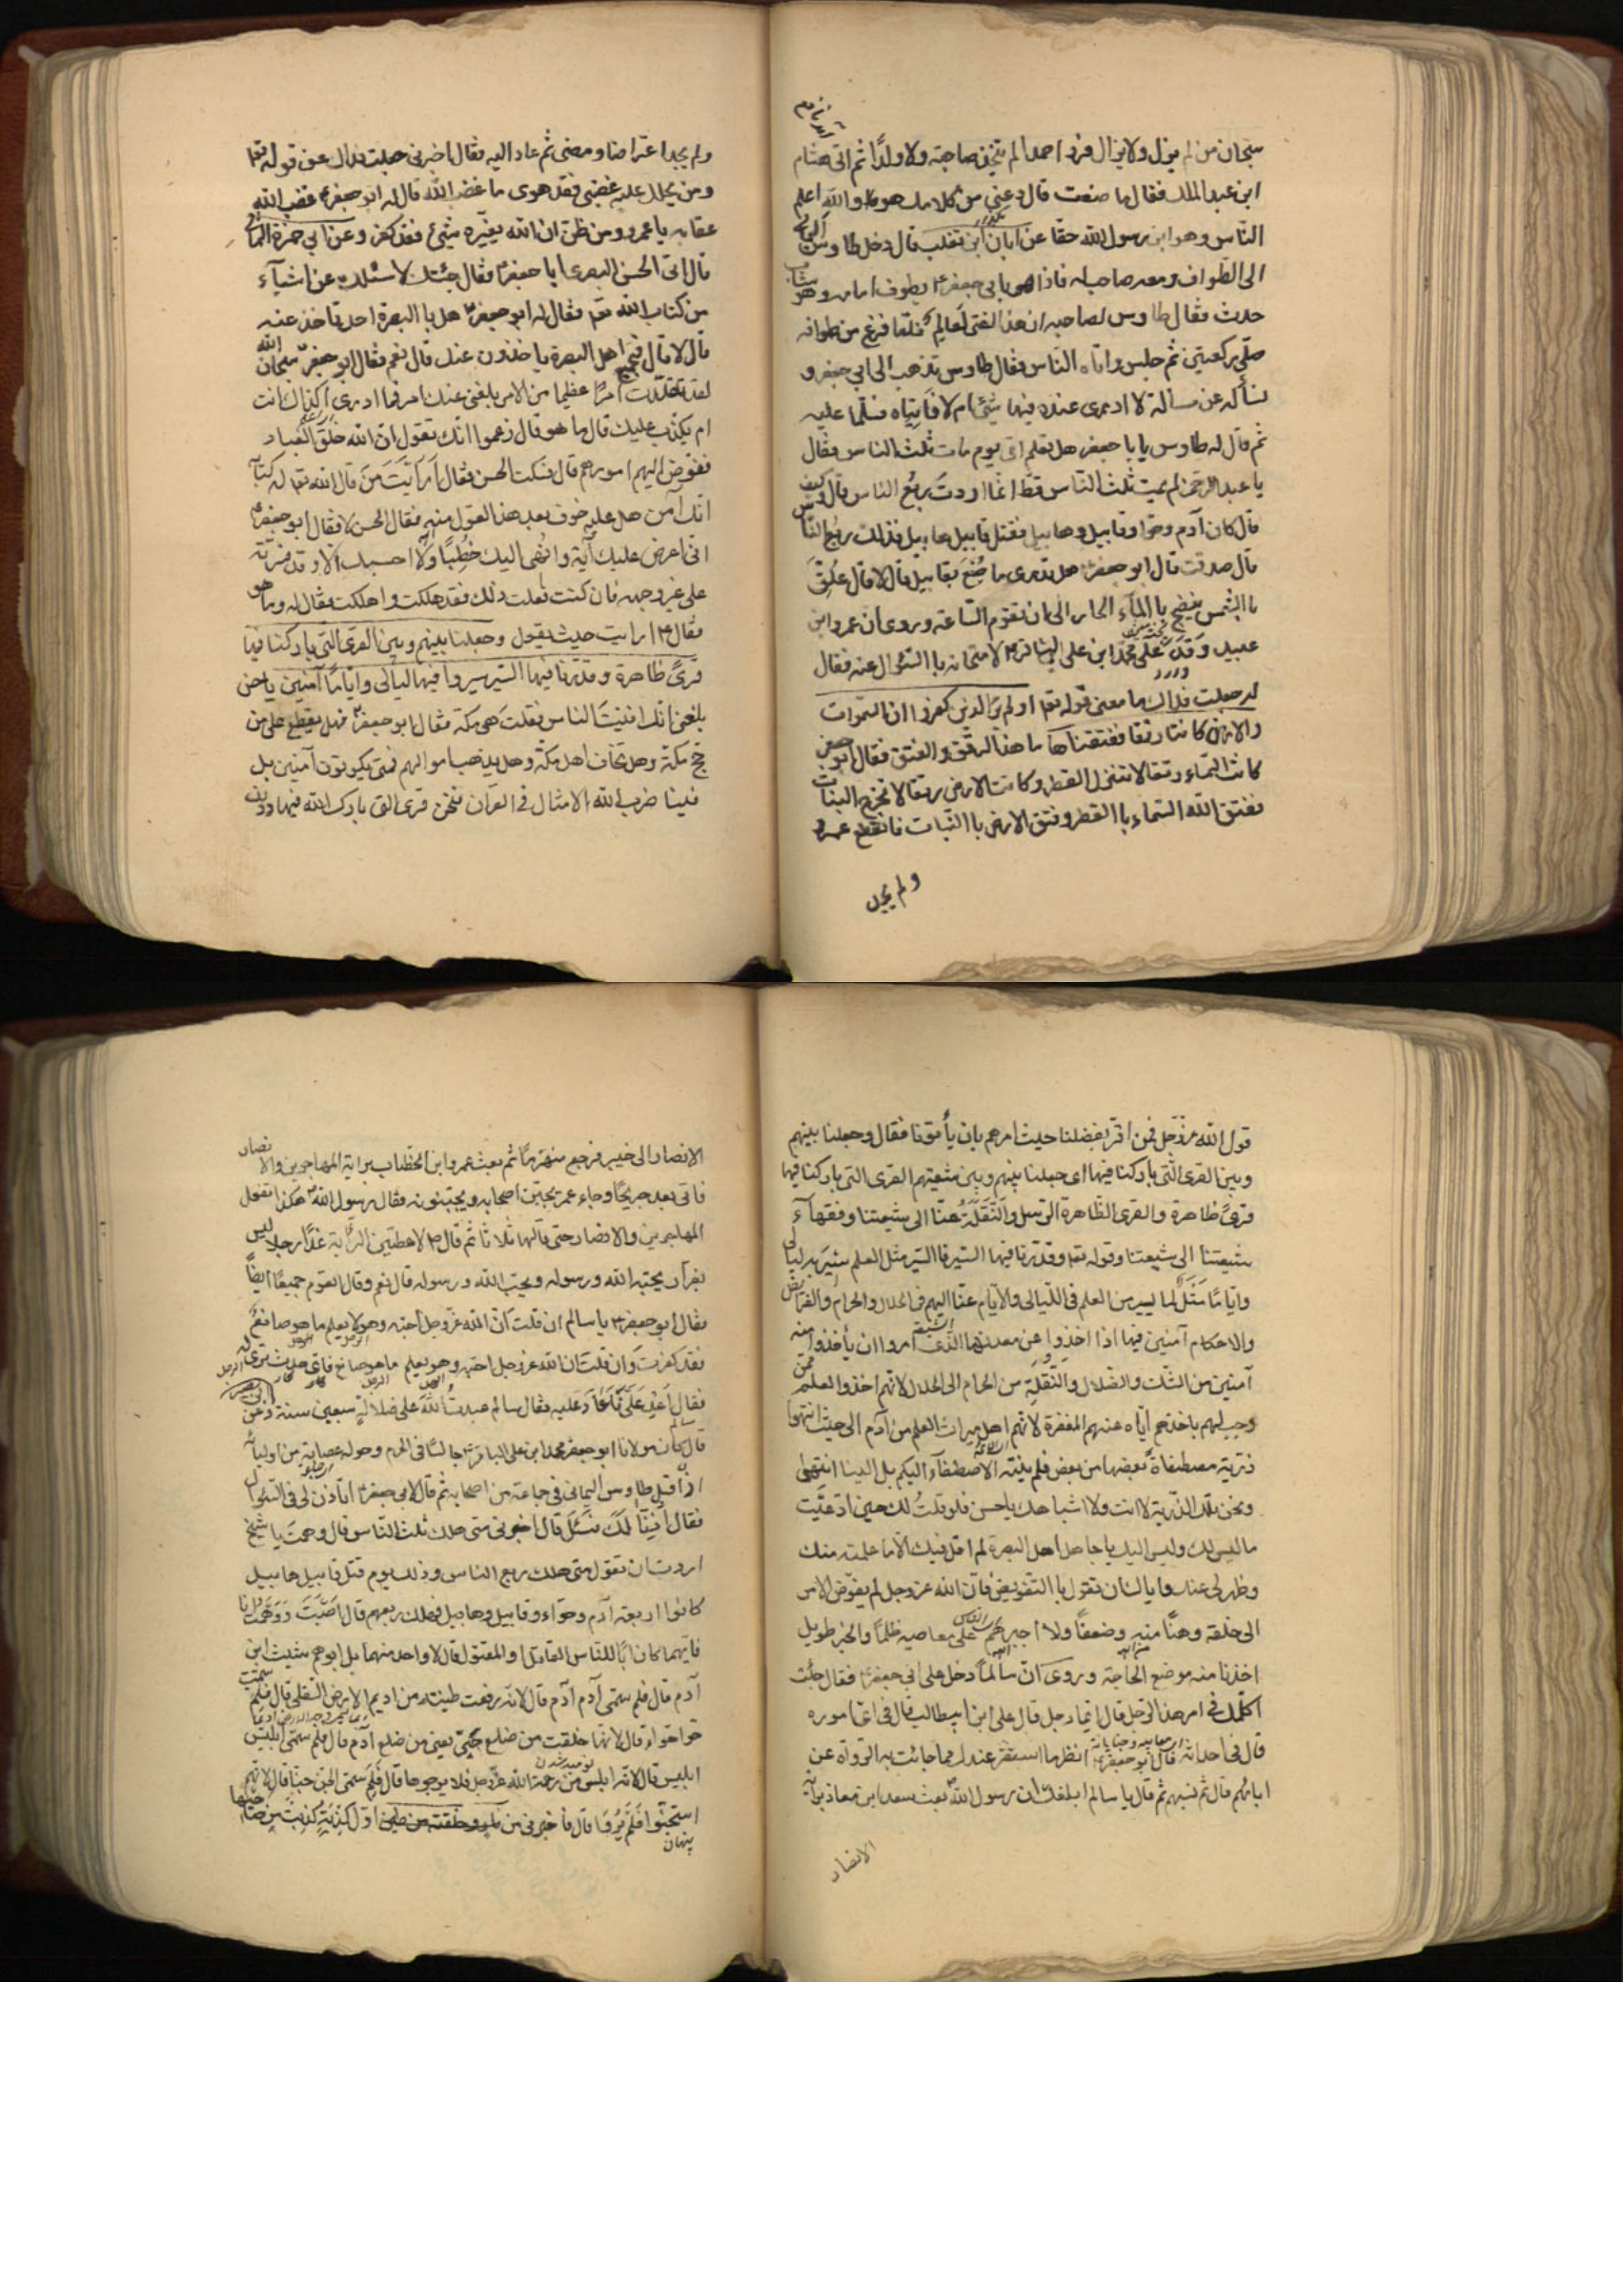 سبحان من لم يزل ولا يزال فردا احدا لم يتخذ صاحبة ولا ولدًا ثم اتى هشام
ابن عبد الملك فقال ما صنعت قال دعني من كلامك هو والله اعلم
الناس وهو ابن رسول الله حقا عن ابان ابن تغلب قال دخل طاوس اليماني
الى الطواف ومعه صاحب له فاذا هو بابي جعفر يطوف امامه وهو شاب
حدث فقال طاوس لصاحبه ان هذا الفتى لعالم فلما فرغ من طوافه
صلّى ركعتين ثم جلس واتاه الناس فقال طاوس نذهب الى ابي جعفر و
نسأله عن مسألة لا ادرى عنده فيها شئ ام لا فاتياه فسلما عليه
ثم قال له طاوس يا با جعفر هل تعلم اى يوم مات ثلث الناس فقال
يا عبد الرحمن لم يمت ثلث الناس قط انما اردت ربع الناس قال وكيف
قال كان آدم وحوا وقابيل وهابيل فقتل قابيل هابيل فذلك ربع الناس
قال صدقت قال ابو جعفر هل تدرى ما صنع بقابيل قال لا قال علق
بالشمس ينضح بالمآء الحار الى ان تقوم الساعة وروى ان عمرو ابن
عبيد وفد على محمد ابن على الباقر لامتحانه با السؤال عنه فقال
له جعلت فداك ما معنى قوله تعا اولم ير الذين كفروا ان السموات
والارض كانتا رتقا ففتقناها ما هذا الرتق والفتق فقال ابو جعفر
كانت السماء رتقا لا تنزل القطر وكانت الارض رتقا لا تخرج النبات
ففتق الله السماء با القطر وفتق الارض با النبات فانقطع عمرو
ولم يجد
ولم يجد اعتراضا ومضى ثم عاد اليه فقال اخبرنى جعلت فداك عن قوله تعا
ومن يحلل عليه غضبي فقد هوى ما غضب الله قال له ابو جعفر غضب الله
عقابه يا عمرو ومن ظن ان الله يغيّره شئ فقد كفر وعن ابي حمزة الثمالى
قال اتى الحسن البصرى ابا جعفر فقال جئتك لاسئلك عن اشيآء
من كتاب الله تعا فقال له ابو جعفر هل با البصرة احد تاخذ عنه
قال لا قال فجميع اهل البصرة ياخذون عنك قال نعم فقال ابو جعفر سبحان الله
لقد تقلدت امرًا عظيما من الامر بلغنى عنك امر فما ادرى اكذاك انت
ام يكذب عليك قال ما هو قال زعموا انك تقول ان الله خلق العباد
ففوّض اليهم امورهم قال فسكت الحسن فقال ارأيت من قال الله تعا له كتابه
انك آمن هل عليه خوف بعد هذا القول منه فقال الحسن لا فقال ابو جعفر
انى اعرض عليك آية وانهى اليك خطبًا ولا احسبك الا وقد فسرته
على غير وجهه فان كنت فعلت ذلك فقد هلكت واهلكت فقال له وما هو
فقال ارايت حيث يقول وجعلنا بينهم وبين القرى التى باركنا فيها
قرىً ظاهرة وقدّرنا فيها السير سيروا فيها ليالى واياما آمنين يا حسن
بلغنى انك افتيت الناس فقلت هى مكة فقال ابو جعفر فهل يقطع على من
حج مكة وهل يخاف اهل مكة وهل يذهب اموالهم فمتى يكونون آمنين بل
فينا ضرب الله الامثال في القرآن فنحن قرى التى بارك الله فيها وذلك
قول الله عزّ وجل فمن اقرّ بفضلنا حيث امرهم بان يأتونا فقال وجعلنا بينهم
وبين القرى التى باركنا فيها اى جعلنا بينهم وبين شيعتهم القرى التى باركنا فيها
قرىً ظاهرة والقرى الظاهرة الرسل والنقلة عنّا الى شيعتنا وفقهآء
شيعتنا الى شيعتنا وقوله تعا وقدّرنا فيها السير فا السير مثل العلم سير به ليالى
وايامًا مثل لما يسير من العلم فى الليالى والايام عنّا اليهم فى الحلال والحرام والفرائض
والاحكام آمنين فيها اذا اخذوا عن معدنها الذى امروا ان يأخذوا منه
آمنين من الشك والضلال والنقلة من الحرام الى الحلال لانهم اخذوا العلم ممن
وجب لهم باخذهم اياه عنهم المغفرة لانهم اهل ميراث العلم من آدم الى حيث انتهوا
ذرية مصطفاة بعضها من بعض فلم ينته الاصطفآء اليكم بل الينا انتهى
ونحن تلك الذرية لا انت ولا اشباهك يا حسن فلو قلت لك حين ادّعيت
ما ليس لك وليس اليك يا جاهل اهل البصرة لم اقل فيك الا ما علمته منك
وظهر لى عنك واياك ان تقول با التفويض فان الله عز وجل لم يفوّض الامر
الى خلقه وهنًا منه وضعفًا ولا اجبرهم على معاصيه ظلمًا والخبر طويل
اخذنا منه موضع الحاجة وروى ان سالمًا دخل على ابى جعفر فقال جئت
اكلمك فى امر هذا الرجل قال ايما رجل قال على ابن ابيطالب قال فى اى اموره
قال فى احداثه قال ابو جعفر انظر ما استقر عندك مما جائت به الرواة عن
ابائهم قال ثم نسبهم ثم قال يا سالم ابلغك ان رسول الله بعث سعد ابن معاذ براية
الانصار
الانصار الى خيبر فرجع منهزمًا ثم بعث عمرو ابن الخطاب براية المهاجرين والانصار
فاتى بعد جريحًا وجاء عمر يجبّن اصحابه ويجبنونه فقال رسول الله هكذا تفعل
المهاجرين والانصار حتى قالها ثلاثا ثم قال لاعطين الراية غدًا رجلا ليس
بفرّار يحبه الله ورسوله ويحب الله ورسوله قال نعم وقال القوم جميعًا ايضًا
فقال ابو جعفر يا سالم ان قلت ان الله عز وجل احبه وهو لا يعلم ما هو صانع
فقد كفرت وان قلت ان الله عز وجل احبه وهو يعلم ما هو صانع فاى حدث ترى له
فقال اعد علىّ فاعاد عليه فقال سالم عبدت الله على ضلالة سبعين سنة وعن ابى بصير
قال كان مولانا ابو جعفر محمد ابن على الباقر جالسًا فى الحرم وحوله عصابة من اوليائه
اذ اقبل طاوس اليمانى فى جماعة من اصحابه ثم قال لابى جعفر اتأذن لى فى السؤال
فقال اذنّا لك فسئل قال اخبرنى متى هلك ثلث الناس قال وهمت يا شيخ
اردت ان تقول متى هلك ربع الناس وذلك يوم قتل قابيل هابيل
كانوا اربعة آدم وحواء وقابيل وهابيل فهلك ربعهم قال اصبت ووهمت انا
فايهما كان ابًا للناس القاتل او المقتول قال لا واحد منهما بل ابوهم شيث ابن
آدم قال فلم سمّى آدم آدم قال لانه رفعت طينته من اديم الارض السفلى قال فلم سمّيت
حوا حواء قال لانها خلقت من ضلع حىّ يعنى من ضلع آدم قال فلم سمّى ابليس
ابليس قال لانه ابلس من رحمة الله عز وجل فلا يرجوها قال فلم سمى الجن جنا قال لانهم
استجنوا فلم يروا قال فاخبرنى عن اول كذبة كذبت من صاحبها
پنهان